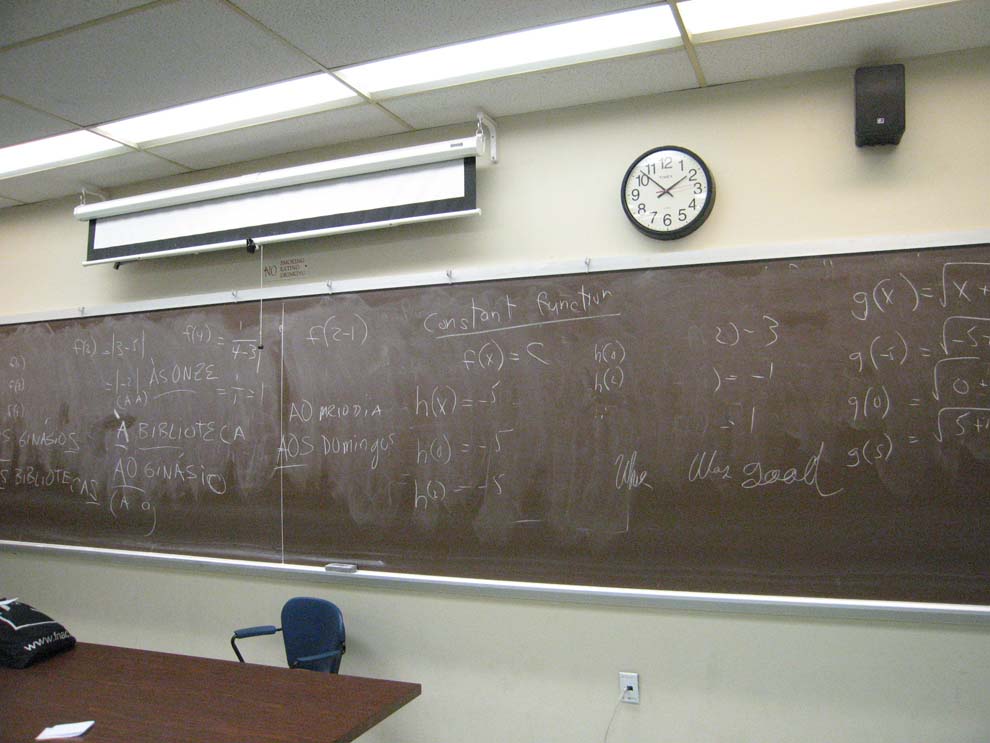 NO SMOKING
EATING
DRINKING
11 12 1
10 2
9 3
8 4
7 6 5
TIMEX
f(2) = |3-5|
f(4) = 1/4-3
= 1/1 = 1
ÀS ONZE
(A A)
À BIBLIOTECA
GINÁSIOS
AO GINÁSIO
BIBLIOTECAS
(A O)
f(2-1)
AO MEIO DIA
AOS DOMINGOS
Constant Function
f(x) = C
h(x) = -5
h(0) = -5
h(2) = -5
h(0)
h(2)
2) - 3
) = -1
= 1
Was good
g(x) = √x+
g(-5) = √-5+
g(0) = √0+
g(5) = √5+
www.fnac